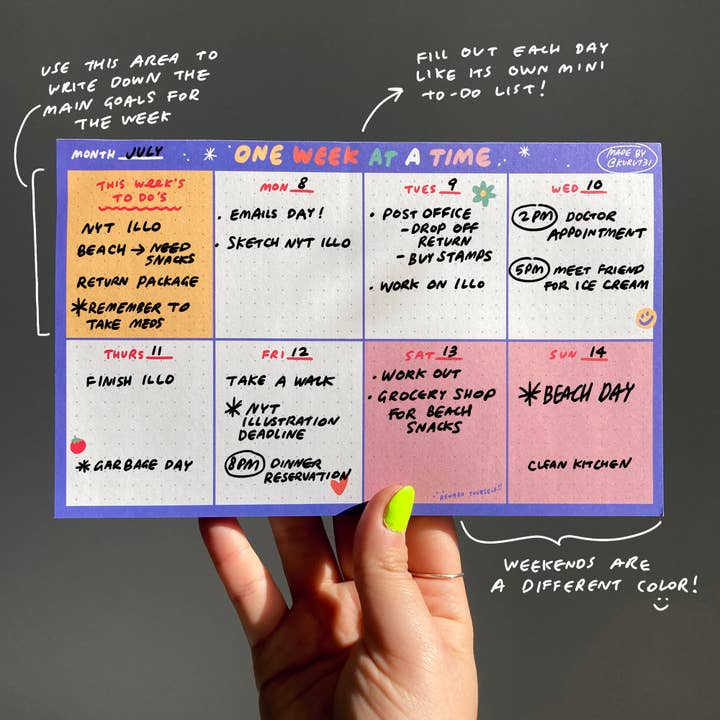 USE THIS AREA TO
WRITE DOWN THE
MAIN GOALS FOR
THE WEEK
FILL OUT EACH DAY
LIKE ITS OWN MINI
TO-DO LIST!
MONTH JULY
ONE WEEK AT A TIME
MADE BY
@KURUT31
THIS WEEK'S
TO DO'S
NYT ILLO
BEACH → NEED
SNACKS
RETURN PACKAGE
*REMEMBER TO
TAKE MEDS
MON 8
• EMAILS DAY!
• SKETCH NYT ILLO
TUES 9
• POST OFFICE
- DROP OFF
RETURN
- BUY STAMPS
• WORK ON ILLO
WED 10
2PM DOCTOR
APPOINTMENT
5PM MEET FRIEND
FOR ICE CREAM
THURS 11
FINISH ILLO
*GARBAGE DAY
FRI 12
TAKE A WALK
* NYT
ILLUSTRATION
DEADLINE
8PM DINNER
RESERVATION
SAT 13
• WORK OUT
• GROCERY SHOP
FOR BEACH
SNACKS
REWARD YOURSELF!!
SUN 14
*BEACH DAY
CLEAN KITCHEN
WEEKENDS ARE
A DIFFERENT COLOR!